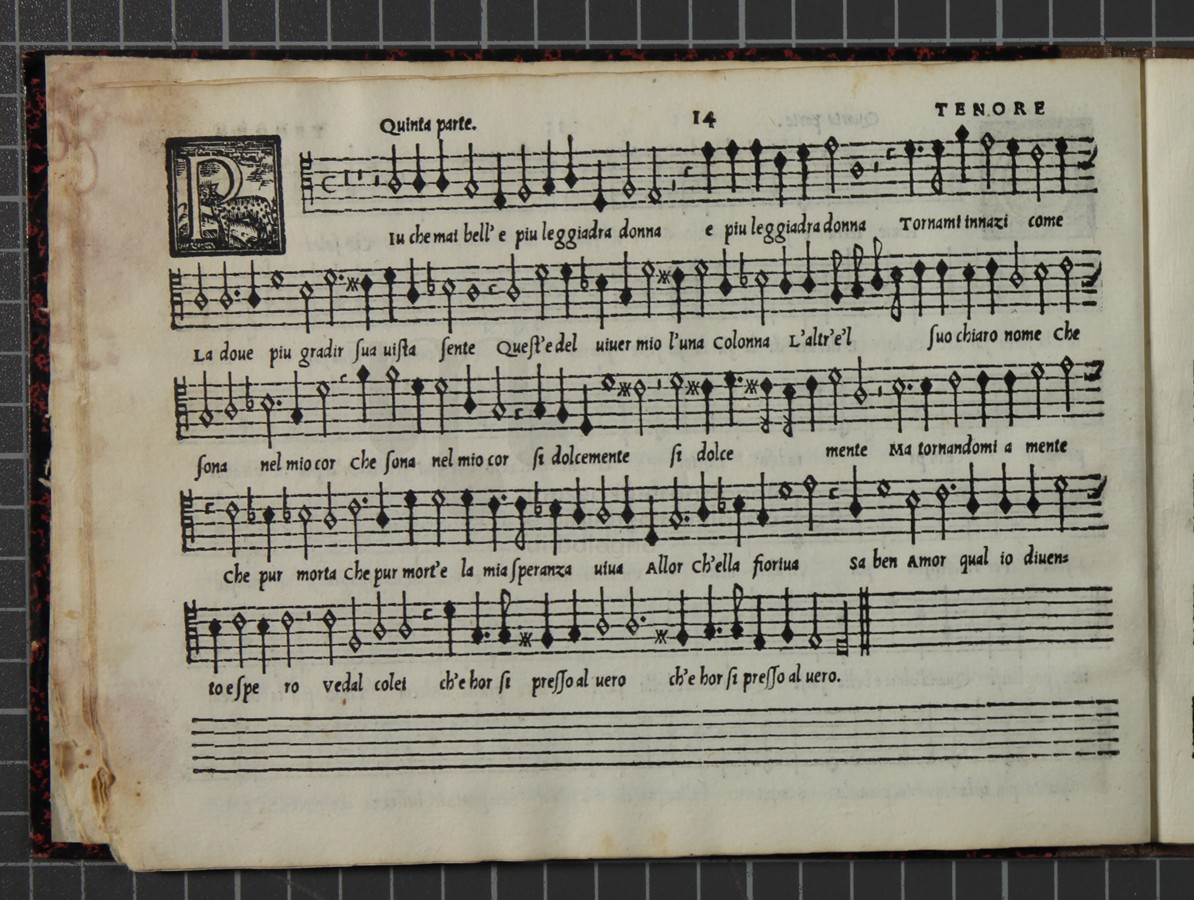 Quinta parte. 14 TENORE
PIu che mai bell' e piu leggiadra donna e piu leggiadra donna Tornami innazi come
La doue piu gradir ſua uiſta ſente Queſt'e del uiuer mio l'una Colonna L'altr'e'l ſuo chiaro nome Che
ſona nel mio cor Che ſona nel mio cor ſi dolcemente ſi dolce mente Ma tornandomi a mente
Che pur morta Che pur mort'e la mia ſperanza uiua Allor Ch'ella fioriua Sa ben Amor qual io diuen=
to e ſpe ro vedal colei ch'e hor ſi preſſo al uero ch'e hor ſi preſſo al uero.